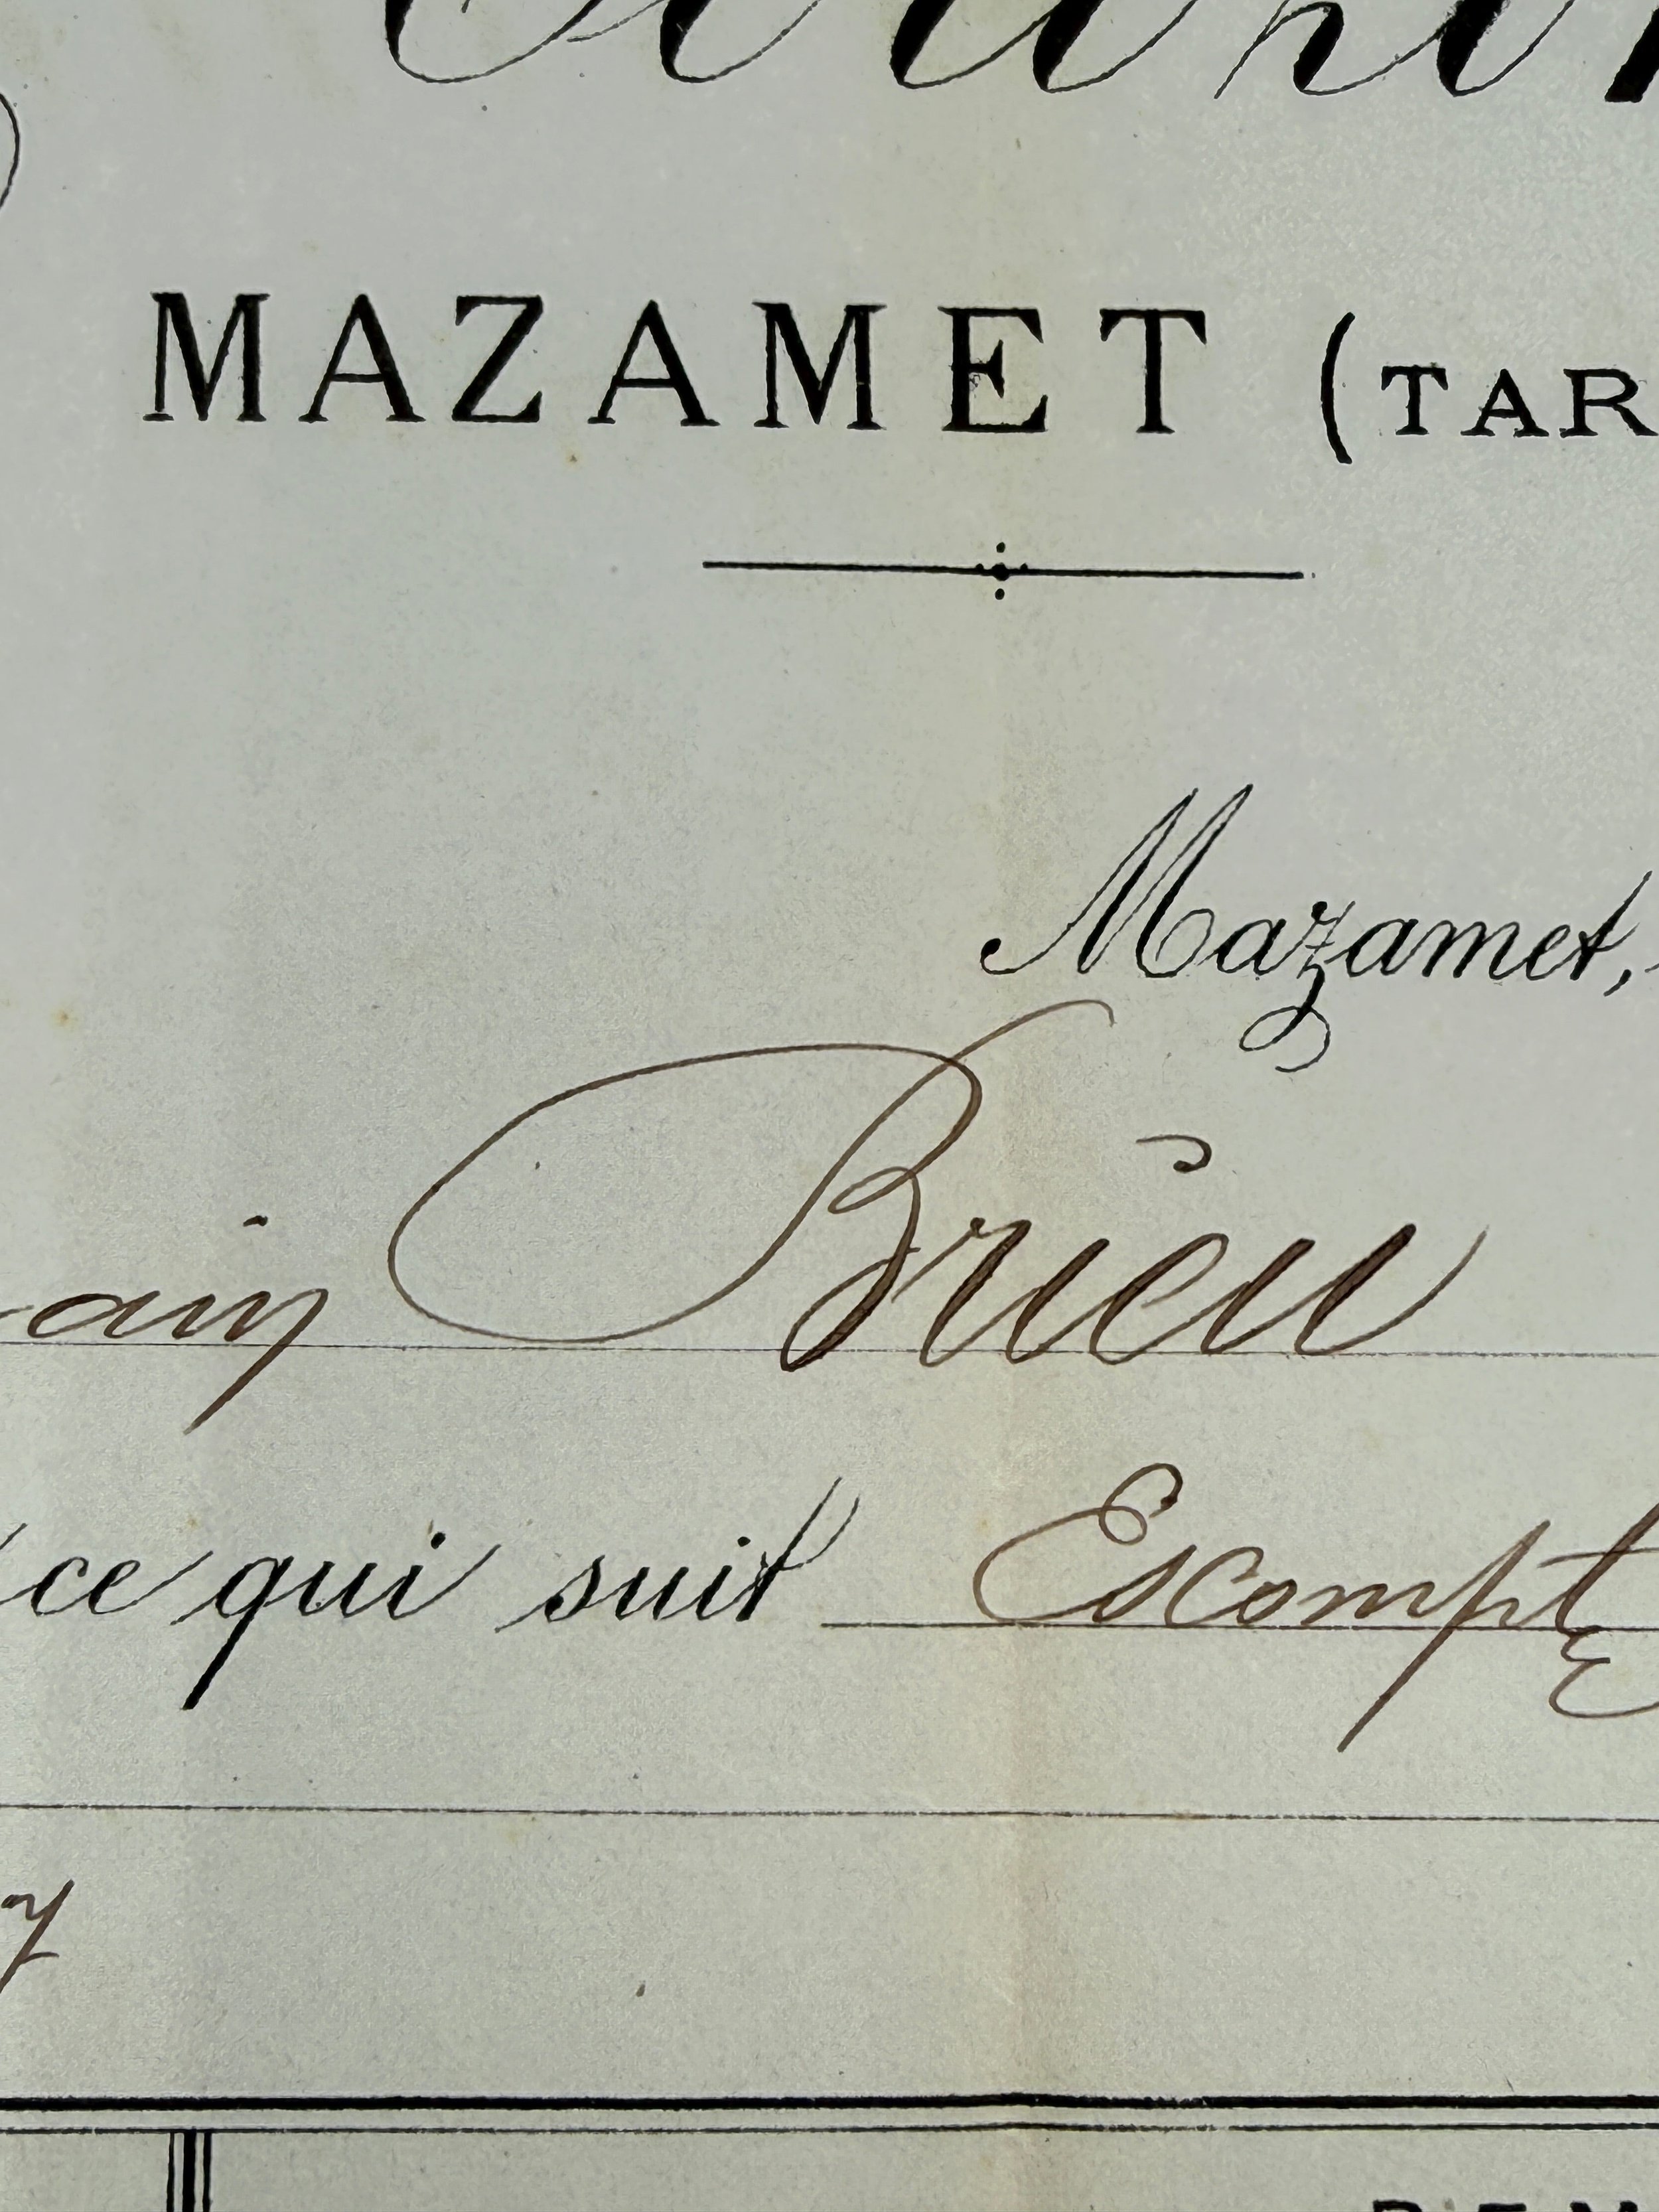 MAZAMET (TAR
Mazamet,
ain Brieu
ce qui suit Escompte